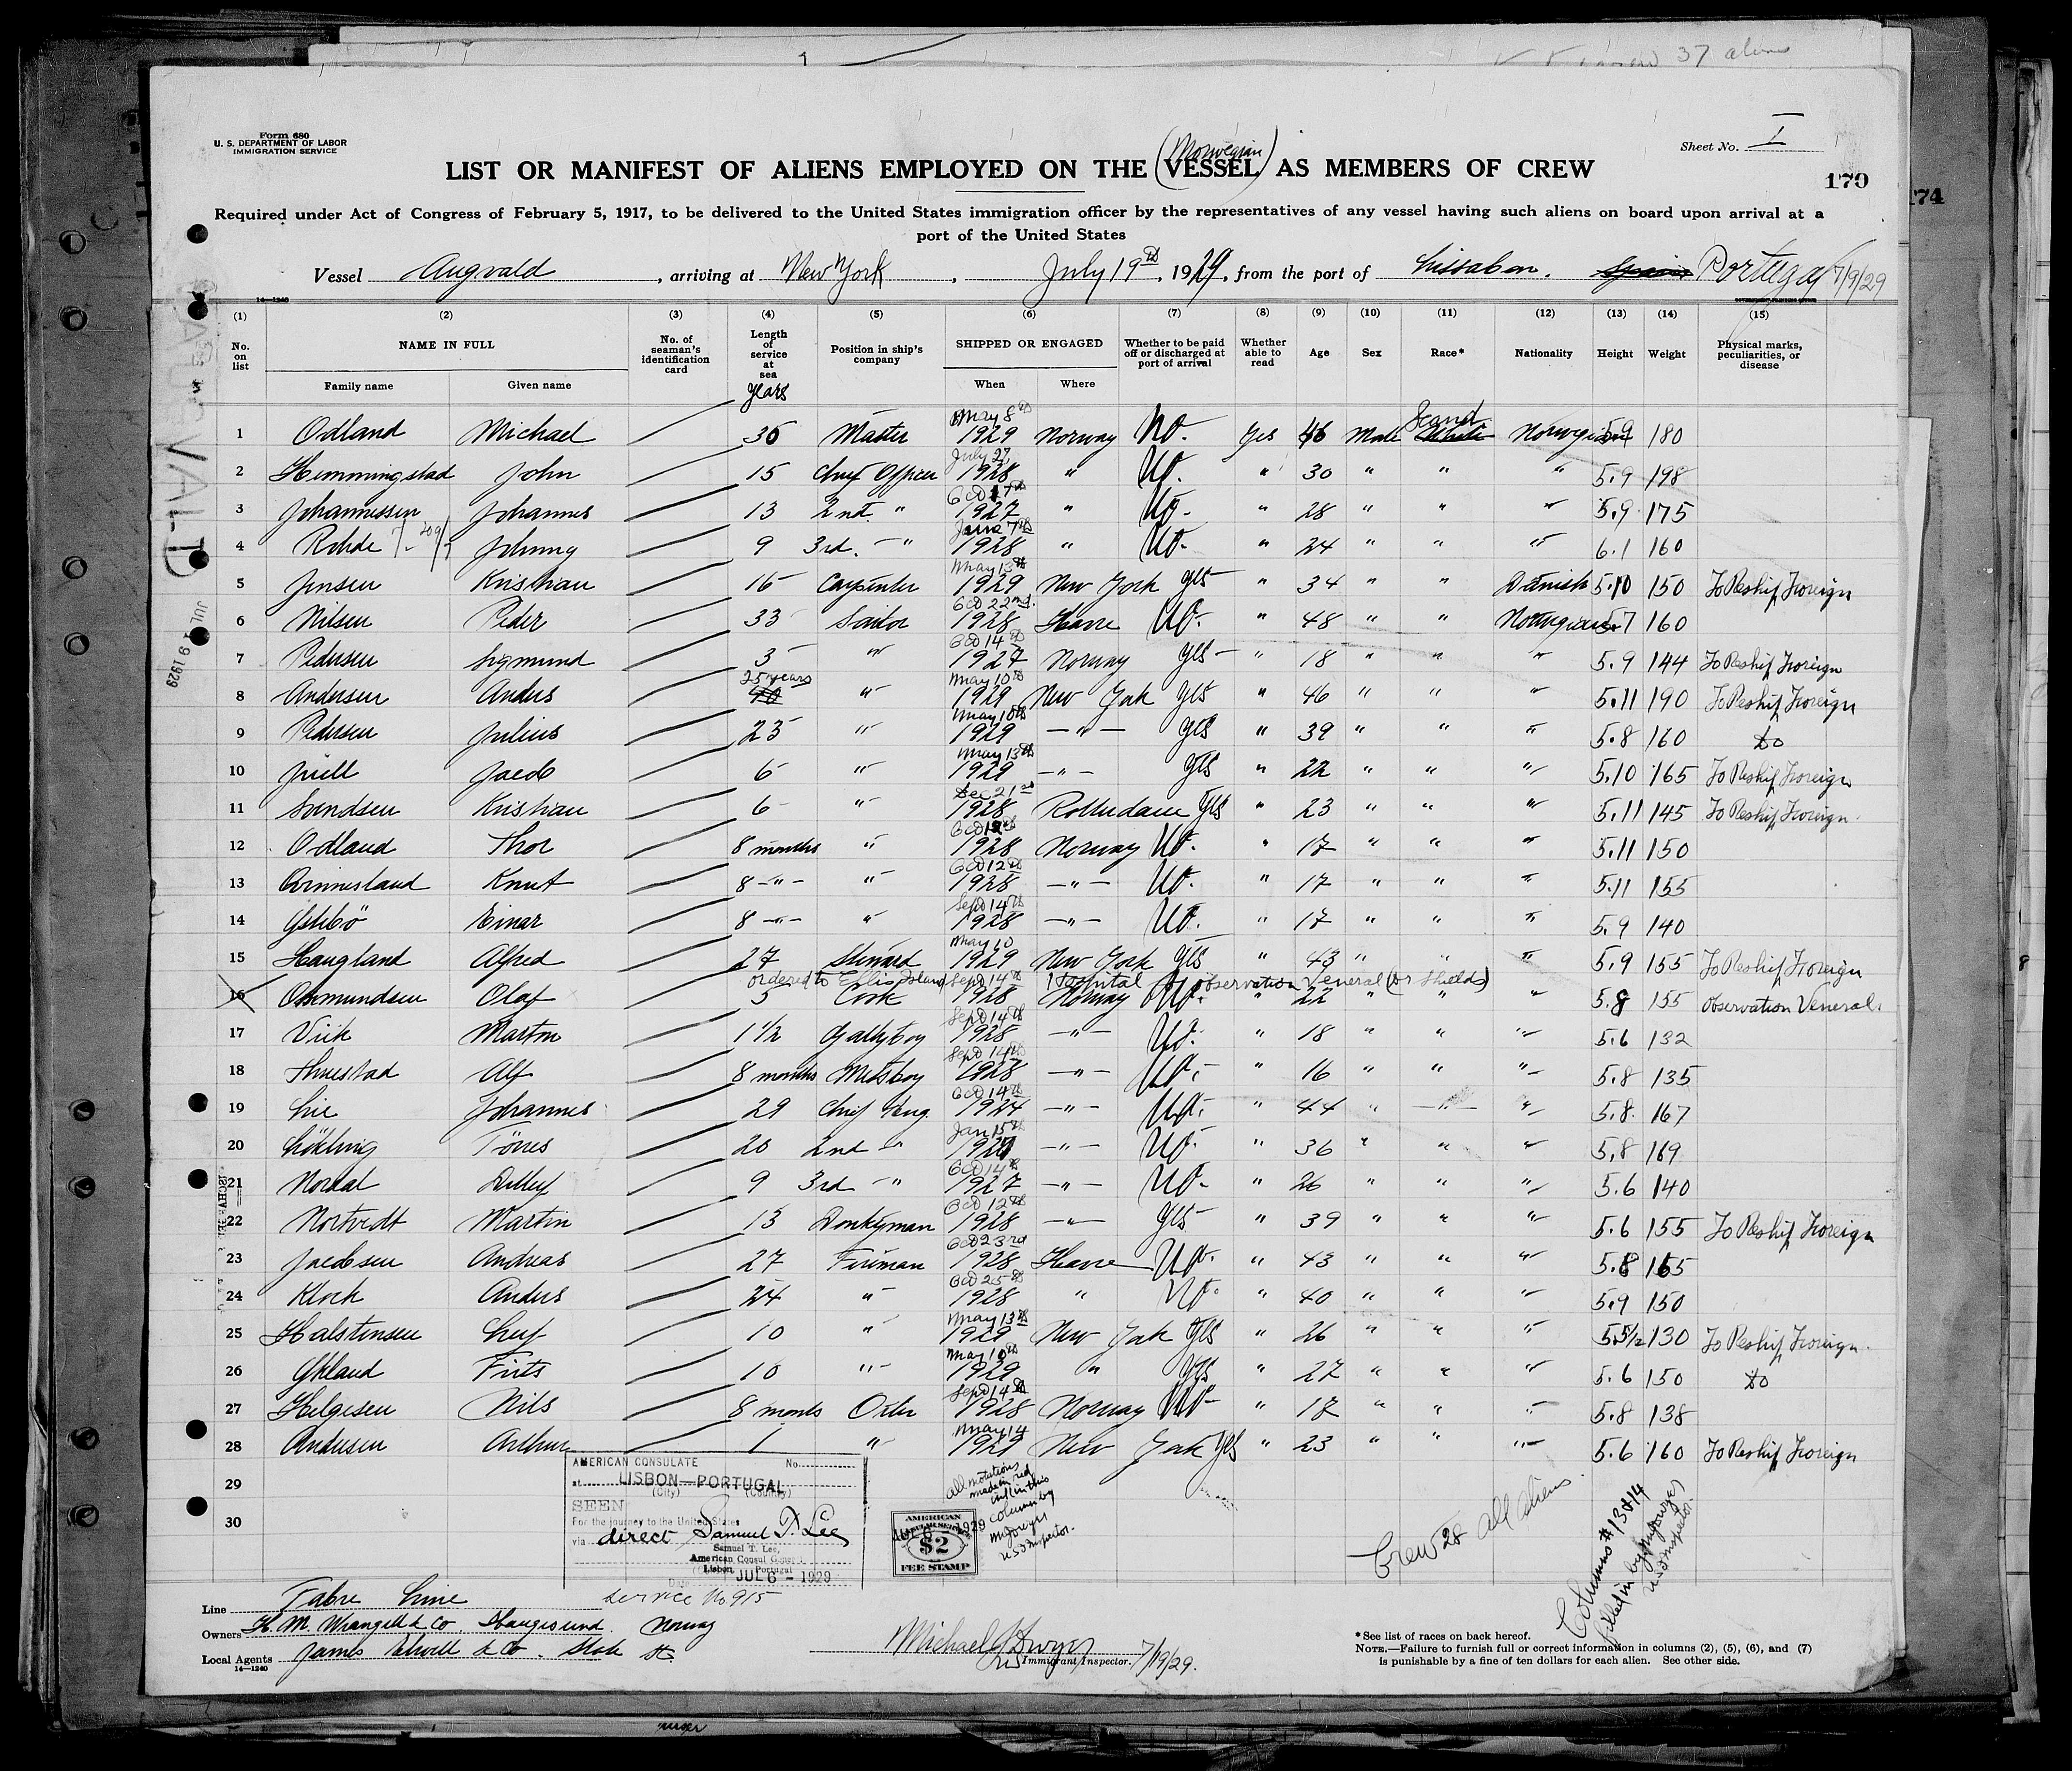 37 aliens
Form 680
U. S. DEPARTMENT OF LABOR
IMMIGRATION SERVICE
Sheet No. I
(Norwegian)
LIST OR MANIFEST OF ALIENS EMPLOYED ON THE VESSEL AS MEMBERS OF CREW
170
174
Required under Act of Congress of February 5, 1917, to be delivered to the United States immigration officer by the representatives of any vessel having such aliens on board upon arrival at a
port of the United States
Vessel Augvald, arriving at New York, July 19th, 1929, from the port of Lissabon. Spain Portugal 7/9/29
14—1240
(1) (2) (3) (4) (5) (6) (7) (8) (9) (10) (11) (12) (13) (14) (15)
No. on list NAME IN FULL Family name Given name No. of seaman's identification card Length of service at sea years Position in ship's company SHIPPED OR ENGAGED When Where Whether to be paid off or discharged at port of arrival Whether able to read Age Sex Race* Nationality Height Weight Physical marks, peculiarities, or disease
1 Odland Michael 36 Master May 8th 1929 Norway No. Yes 46 Male Scand White Norwegian 5.9 180
2 Hemmingstad John 15 Chief Officer July 27, 1928 " No. " 30 " " " 5.9 198
3 Johannessen Johannes 13 2nd. " Oct 17th 1927 " No. " 28 " " " 5.9 175
4 Rohde Johnny 9 3rd. —" 7th 1928 " No. " 24 " " " 6.1 160
5 Jensen Kristian 16 Carpenter May 13th 1929 New York Yes " 34 " " Danish 5.10 150 To Reship Foreign
6 Nilsen Peder 33 Sailor Oct 22nd. 1928 Havre No. " 48 " " Norwegian 5.7 160
7 Pedersen Sigmund 3 " Oct 14th 1927 Norway Yes " 18 " " " 5.9 144 To Reship Foreign
8 Andersen Anders 25 years " May 10th 1929 New York Yes " 46 " " " 5.11 190 To Reship Foreign
9 Pedersen Julius 23 " May 10th 1929 —"— Yes " 39 " " " 5.8 160 do
10 Juell Jacob 6 " May 13th 1929 —"— Yes " 22 " " " 5.10 165 To Reship Foreign
11 Sandsen Kristian 6 " Dec 21st 1928 Rotterdam Yes " 23 " " " 5.11 145 To Reship Foreign
12 Odland Thor 8 months " Oct 1928 Norway No. " 17 " " " 5.11 150
13 Knut 8 —"— " Oct 12th 1928 —"— No. " 17 " " " 5.11 155
14 Einar 8 —"— " Sept 14th 1928 —"— No. " 17 " " " 5.9 140
15 Haugland Alfred 27 Steward May 10 1929 New York Yes " 43 " " " 5.9 155 To Reship Foreign
ordered to Ellis Island Hospital for observation Veneral (Dr Shields)
16 Osmundsen Olaf 5 Cook Sept 14th 1928 Norway No. " 22 " " " 5.8 155 Observation Veneral.
17 Viik Marton 1 1/2 Galleyboy Sept 14th 1928 —"— No. " 18 " " " 5.6 132
18 Thuestad Alf 8 months Messboy Sept 14th 1928 —"— No. " 16 " " " 5.8 135
19 Lie Johannes 29 Chief Eng. Oct 14th 1924 —"— No. " 44 " —"— " 5.8 167
20 Tönnes 20 2nd " Jan 15th —"— No. " 36 " " " 5.8 169
21 Nordal 9 3rd —" Oct 14th 1927 —"— No. " 26 " " " 5.6 140
22 Nortvedt Martin 13 Donkeyman Oct 12th 1928 —"— Yes " 39 " " " 5.6 155 To Reship Foreign
23 Jacobsen Andreas 27 Fireman Oct 23rd 1928 Havre No. " 43 " " " 5.8 165
24 Klock Anders 24 " Oct 25th 1928 " No. " 40 " " " 5.9 150
25 Halstensen Leif 10 " May 13th 1929 New York Yes " 26 " " " 5.5 1/2 130 To Reship Foreign
26 Frits 10 " May 10th 1929 " Yes " 27 " " " 5.6 150 do
27 Helgesen Nils 8 months Oiler Sept 14th 1928 Norway No " 17 " " " 5.8 138
28 Andersen Arthur 1 " May 14 1929 New York Yes " 23 " " " 5.6 160 To Reship Foreign
29
30
AUGVALD
JUL 19 1929
AMERICAN CONSULATE No.
at LISBON—PORTUGAL
(City) (Country)
SEEN
For the journey to the United States
via direct Samuel T. Lee
Samuel T. Lee,
American Consul General
Lisbon, Portugal
Date JUL 6 - 1929
service No 915
JUL 6 1929
AMERICAN
CONSULAR SERVICE
$2
FEE STAMP
All notations
made in red
ink in this
column by
M Dwyer
US Inspector.
Crew 28 all aliens
Columns # 13 & 14
filled in by M Dwyer
U.S. Inspector.
Line Fabre Line
Owners H. M. Wrangell & Co. Haugesund. Norway
Local Agents James Elwell & Co. State St.
14—1240
Michael J Dwyer
US Immigrant Inspector. 7/19/29.
* See list of races on back hereof.
NOTE.—Failure to furnish full or correct information in columns (2), (5), (6), and (7)
is punishable by a fine of ten dollars for each alien. See other side.